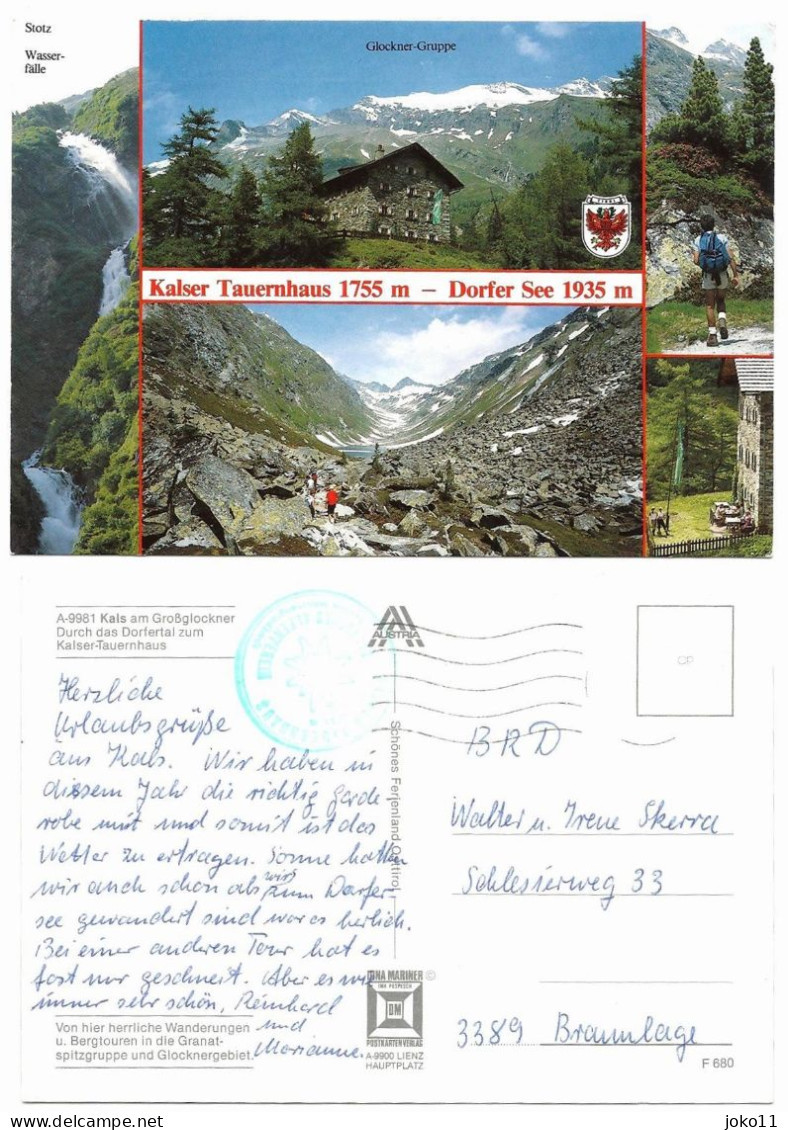 Stotz
Wasser-
fälle
Glockner-Gruppe
TIROL
Kalser Tauernhaus 1755 m – Dorfer See 1935 m
A-9981 Kals am Großglockner
Durch das Dorfertal zum
Kalser-Tauernhaus
AUSTRIA
CP
Herzliche
Urlaubsgrüße
aus Kals. Wir haben in
diesem Jahr die richtig garde
robe mit und somit ist das
Wetter zu ertragen. Sonne hatten
wir auch schon als wir zum Dorfer-
see gewandert sind war es herlich.
Bei einer anderen Tour hat es
fast nur geschneit. Aber es war
immer sehr schön, Reinhard
und
Marianne.
Schönes Ferienland Osttirol
BRD
Walter u. Irene Skerra
Schlesierweg 33
3389 Braunlage
Von hier herrliche Wanderungen
u. Bergtouren in die Granat-
spitzgruppe und Glocknergebiet.
INA MARINER ©
DM
POSTKARTENVERLAG
A-9900 LIENZ
HAUPTPLATZ
F 680
joko11